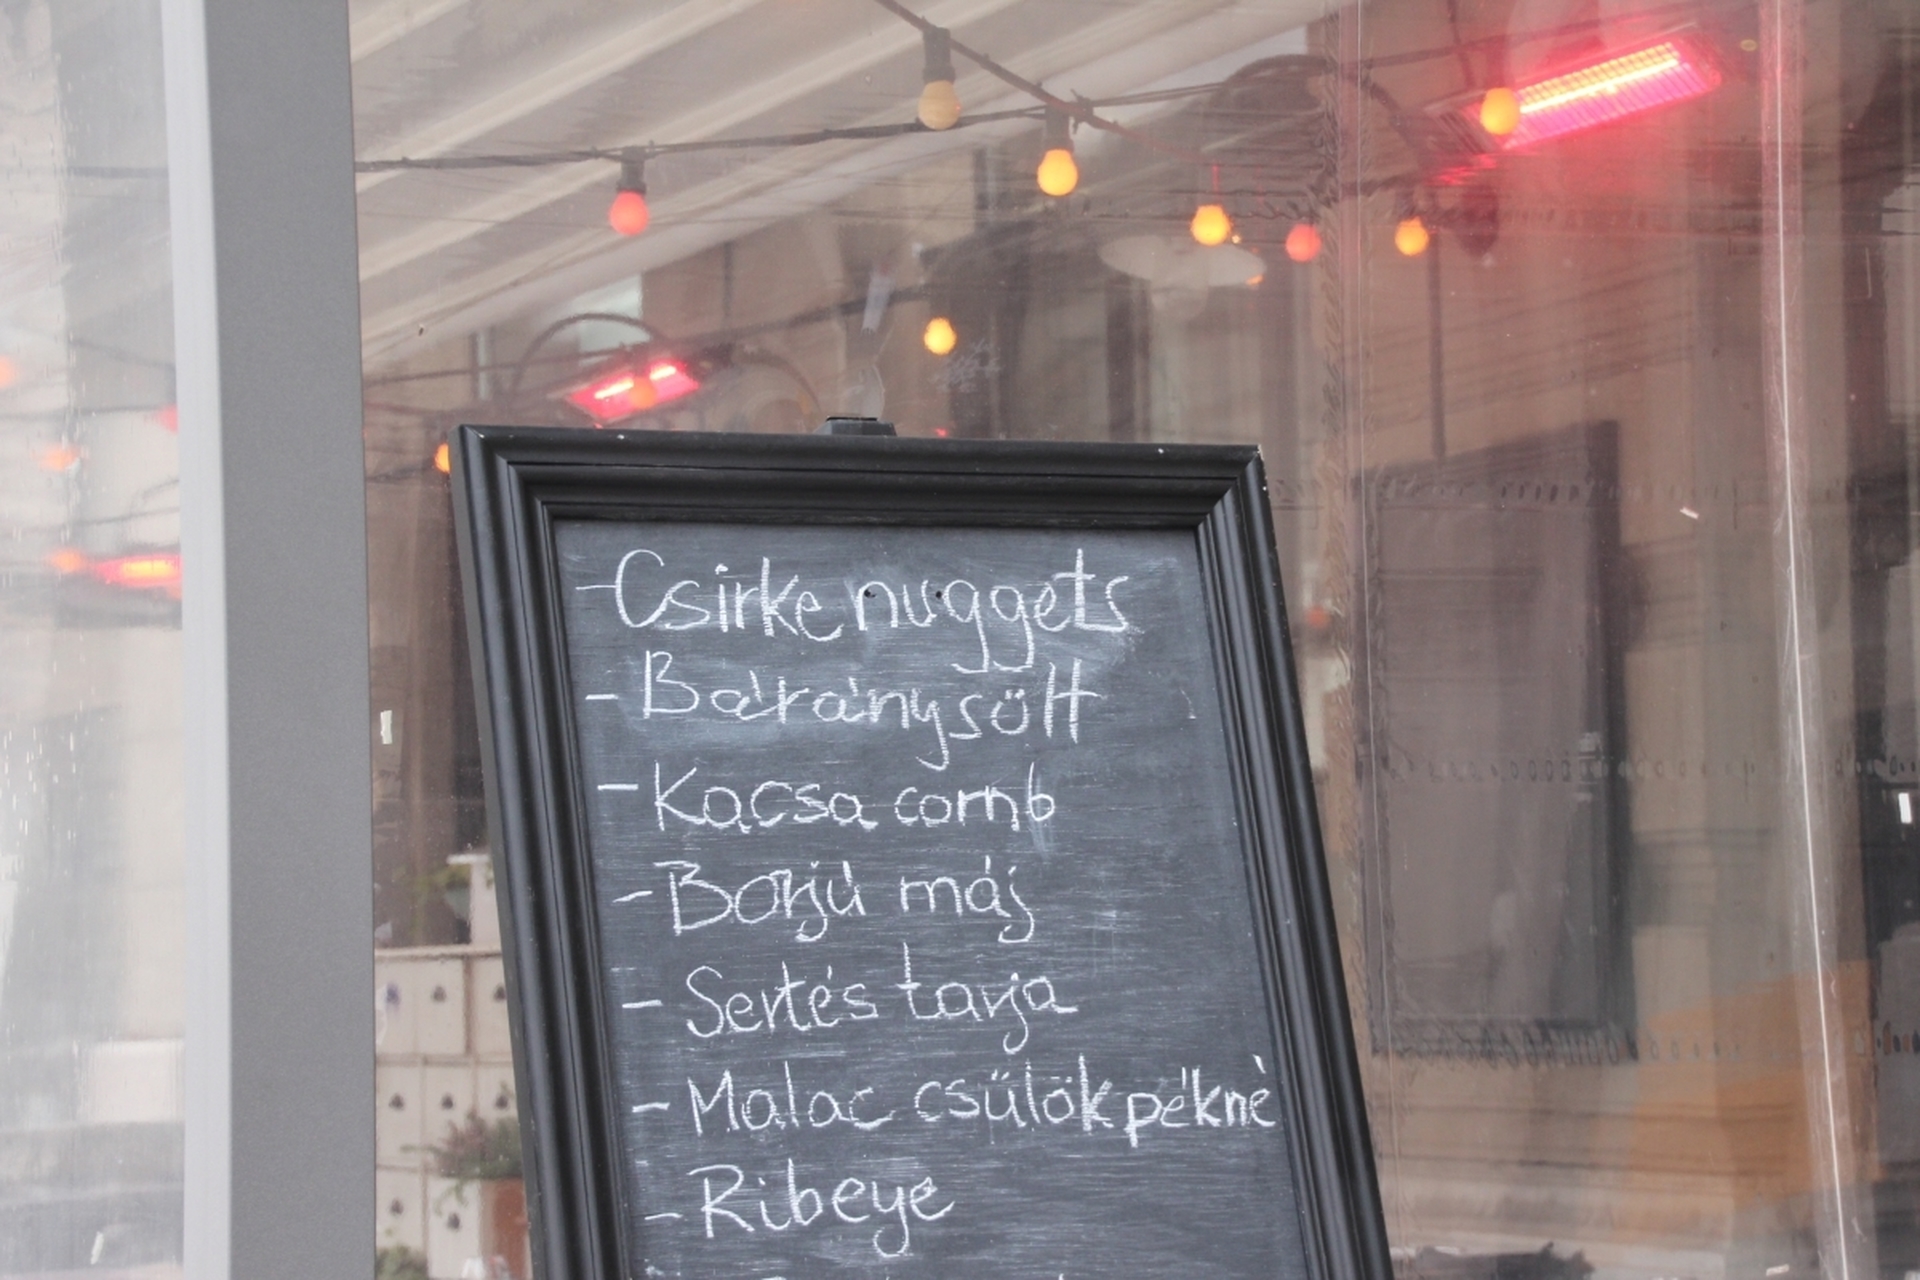 - Csirke nuggets
- Báránysült
- Kacsa comb
- Borjú máj
- Sertés tarja
- Malac csülök pékné
- Ribeye